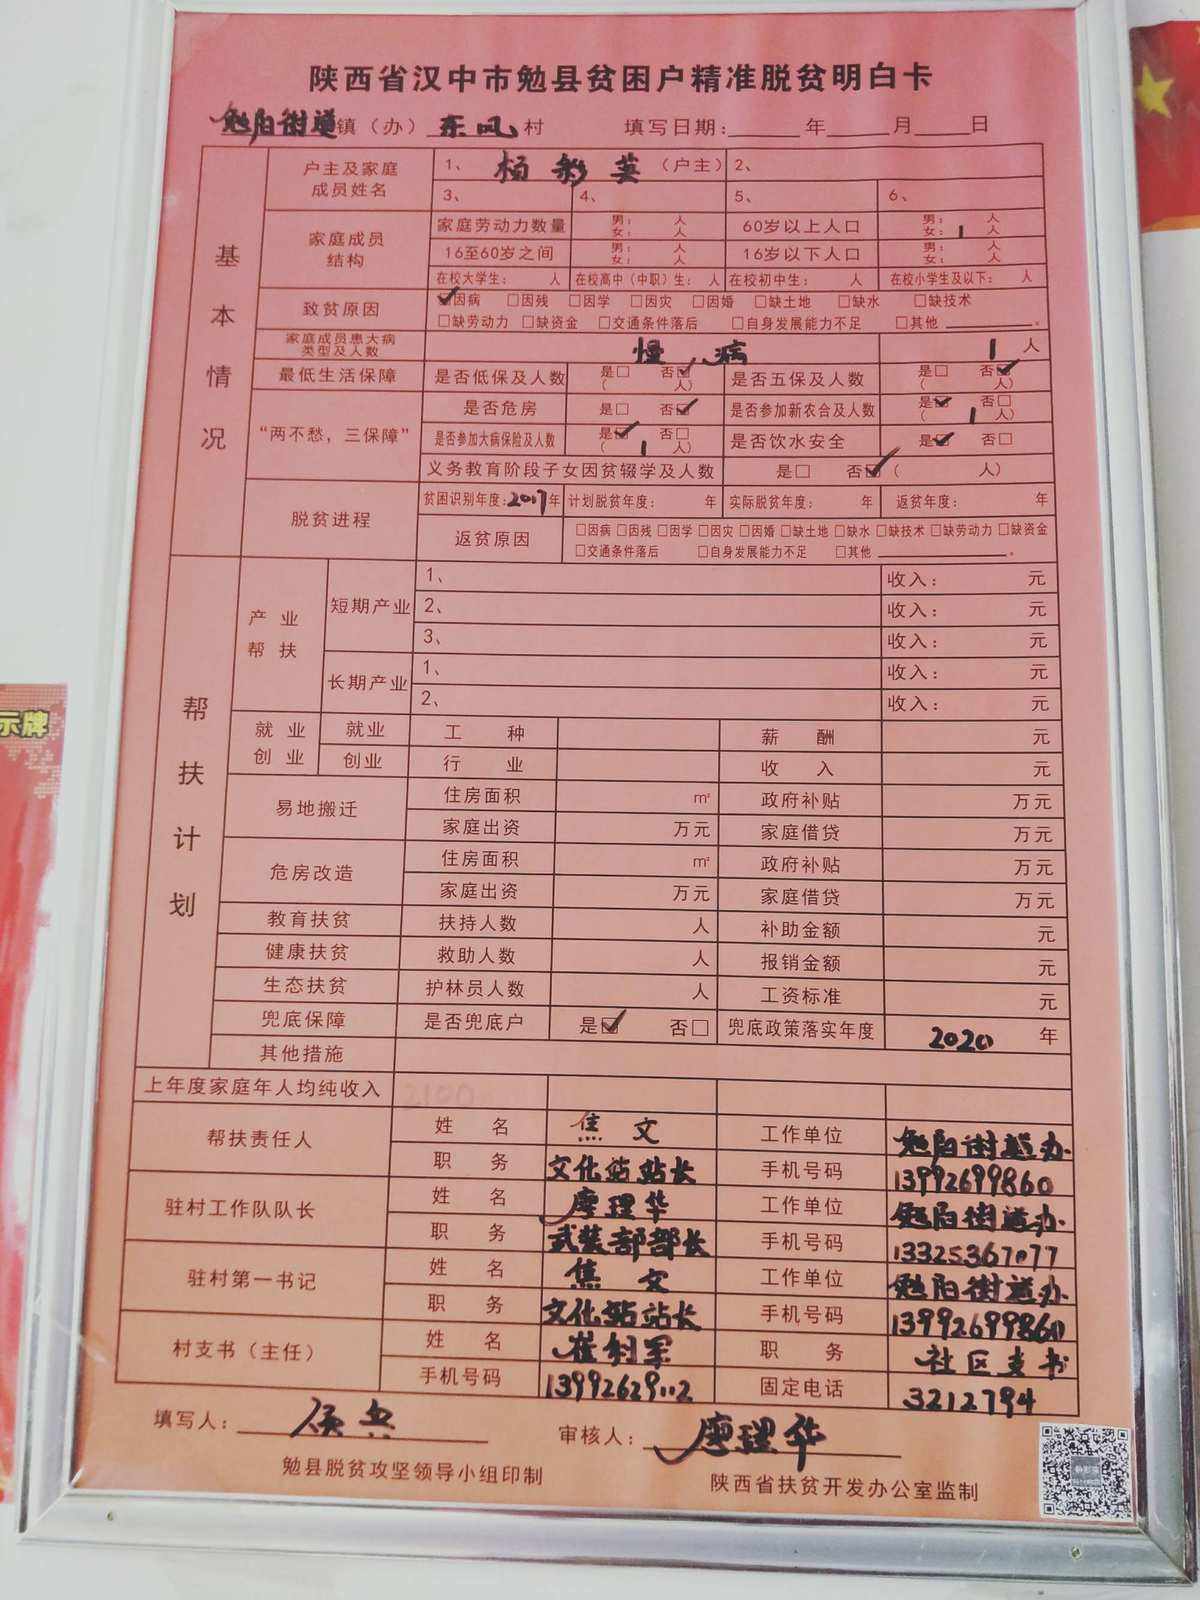 陕西省汉中市勉县贫困户精准脱贫明白卡
勉阳街道镇（办）东风村 填写日期：年月日
基本情况
户主及家庭成员姓名 1、杨彩英（户主） 2、
3、 4、 5、 6、
家庭成员结构 家庭劳动力数量 男：人 女：人 60岁以上人口 男：人 女：1人
16至60岁之间 男：人 女：人 16岁以下人口 男：人 女：人
在校大学生：人 在校高中（中职）生：人 在校初中生：人 在校小学生及以下：人
致贫原因 ☑因病 □因残 □因学 □因灾 □因婚 □缺土地 □缺水 □缺技术
□缺劳动力 □缺资金 □交通条件落后 □自身发展能力不足 □其他。
家庭成员患大病类型及人数 慢病 1人
最低生活保障 是否低保及人数 是□ 否☑（人） 是否五保及人数 是□ 否☑（人）
“两不愁，三保障” 是否危房 是□ 否☑ 是否参加新农合及人数 是☑ 否□（1人）
是否参加大病保险及人数 是☑ 否□（1人） 是否饮水安全 是☑ 否□
义务教育阶段子女因贫辍学及人数 是□ 否☑（人）
脱贫进程 贫困识别年度：2017年 计划脱贫年度：年 实际脱贫年度：年 返贫年度：年
返贫原因 □因病 □因残 □因学 □因灾 □因婚 □缺土地 □缺水 □缺技术 □缺劳动力 □缺资金
□交通条件落后 □自身发展能力不足 □其他。
帮扶计划
产业帮扶 短期产业 1、 收入：元
2、 收入：元
3、 收入：元
长期产业 1、 收入：元
2、 收入：元
就业创业 就业 工种 薪酬 元
创业 行业 收入 元
易地搬迁 住房面积 ㎡ 政府补贴 万元
家庭出资 万元 家庭借贷 万元
危房改造 住房面积 ㎡ 政府补贴 万元
家庭出资 万元 家庭借贷 万元
教育扶贫 扶持人数 人 补助金额 元
健康扶贫 救助人数 人 报销金额 元
生态扶贫 护林员人数 人 工资标准 元
兜底保障 是否兜底户 是☑ 否□ 兜底政策落实年度 2020年
其他措施
上年度家庭年人均纯收入
帮扶责任人 姓名 焦文 工作单位 勉阳街道办
职务 文化站站长 手机号码 13992699860
驻村工作队队长 姓名 廖理华 工作单位 勉阳街道办
职务 武装部部长 手机号码 13325367077
驻村第一书记 姓名 焦文 工作单位 勉阳街道办
职务 文化站站长 手机号码 13992699860
村支书（主任） 姓名 崔利军 职务 社区支书
手机号码 13992629112 固定电话 3212794
填写人： 审核人：廖理华
勉县脱贫攻坚领导小组印制 陕西省扶贫开发办公室监制
示牌